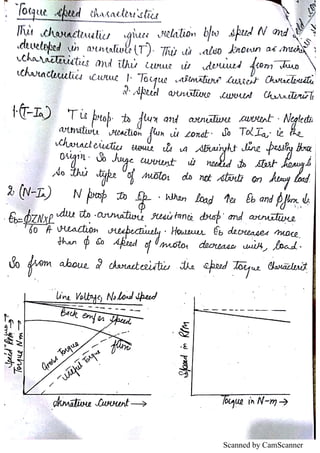 Torque speed characteristics
This characteristics gives relation b/w speed N and
developed in armature (T). This is also known as mech
characteristics and this curve is derived from two
characteristics curve 1. Torque armature current characteristic
2. speed armature current characteristic
1. (T-Ia) T is prop. to flux and armature current. Neglecte
armature reaction flux is const. So TαIa, ie the
characteristics curve is a straight line passing throu
origin. So huge current is needed to start heavy lo
so this type of motor do not starts on heavy load.
2. (N-Ia) N prop to Eb/φ. When load ↑es Eb and φ flux ↓s
Eb = φZNxP/60A due to armature resistance drop and armature
reaction respectively. However Eb decreases more
than φ so speed of motor decrease with load.
So from above 2 characteristics the speed torque characterist
Line Voltage, No load speed
Back emf or speed
flux
Gross Torque
Useful Torque
Speed RPM →
Torque Nm →
Armature Current →
Speed in RPM
Torque in N-m →
Scanned by CamScanner